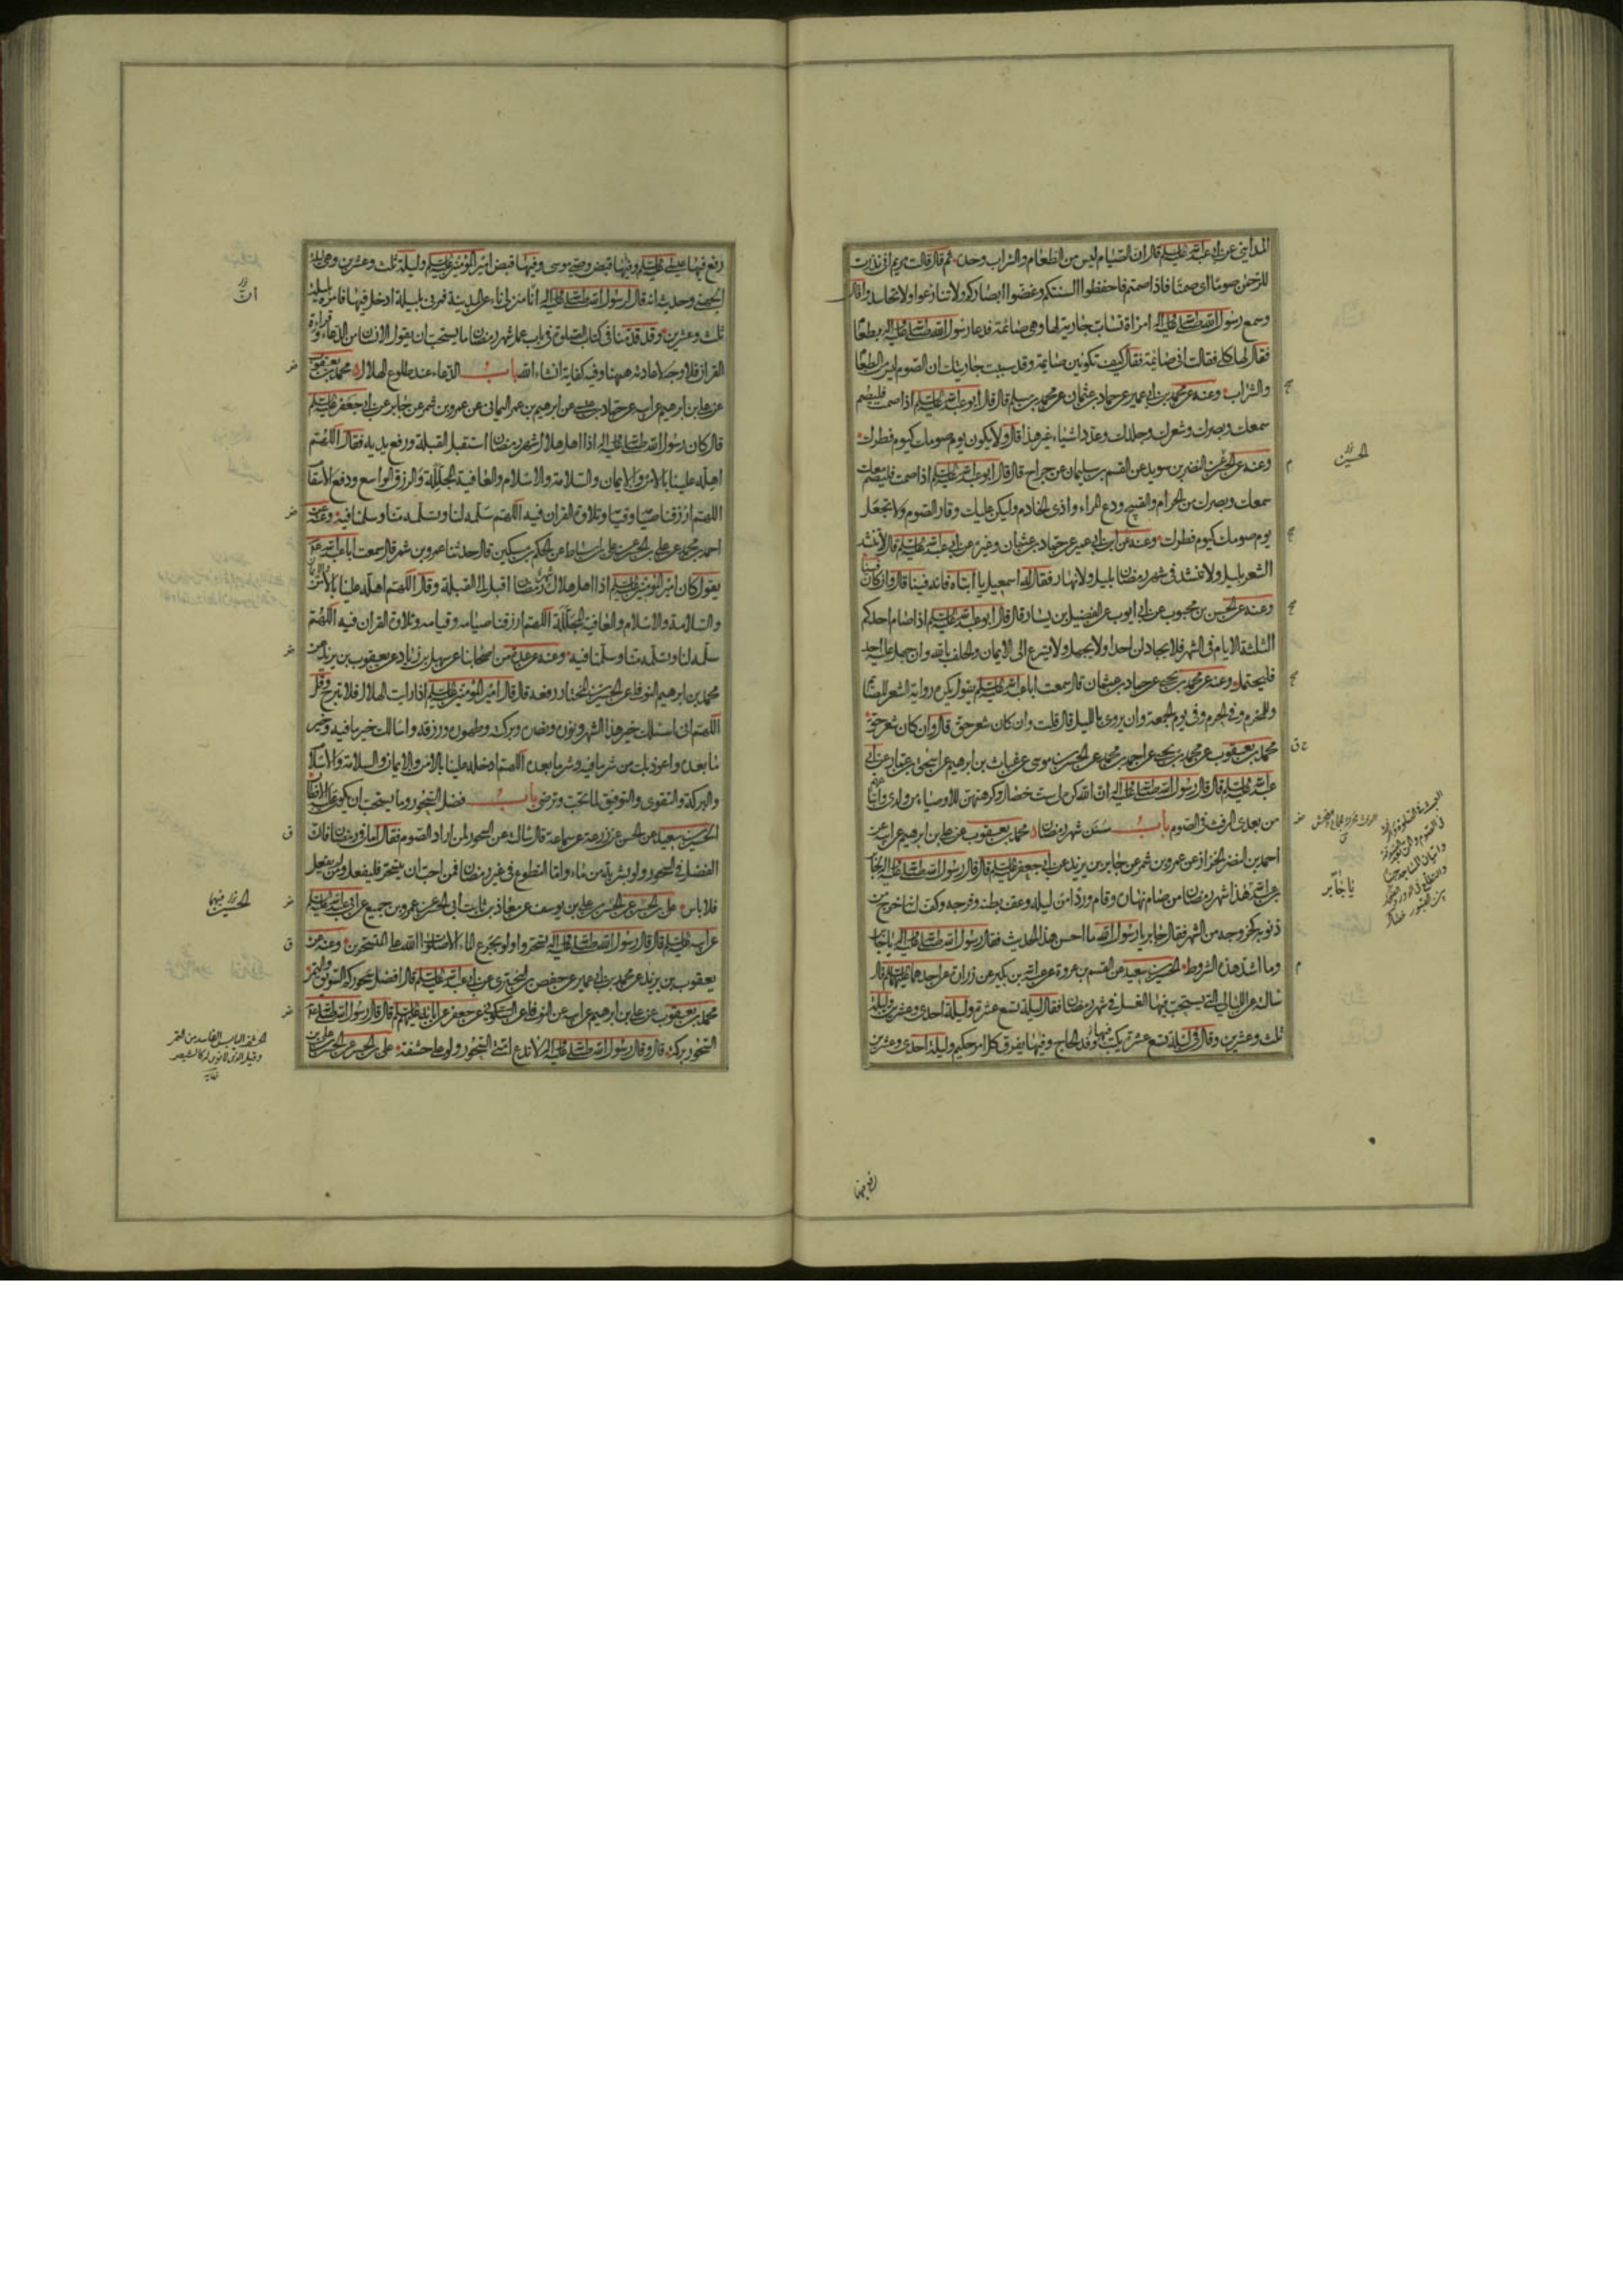 المدايني عن ابي عبد الله عليه السلم قال ان الصيام ليس من الطعام والشراب وحده ثم قال قالت مريم اني نذرت
للرحمن صوما اي صمتا فاذا صمتم فاحفظوا السنتكم وغضوا ابصاركم ولا تنازعوا ولا تحاسدوا قال
وسمع رسول الله صلى الله عليه واله امراة تساب جارية لها وهي صائمة فدعا رسول الله صلى الله عليه واله بطعام
فقال لها كلي فقالت اني صائمة فقال كيف تكونين صايمة وقد سببت جاريتك ان الصوم ليس من الطعام
والشراب وعنه عن محمد بن ابي عمير عن حماد بن عثمان عن محمد بن مسلم قال قال ابو عبد الله عليه السلم اذا صمت فليصم
سمعك وبصرك وشعرك وجلدك وعدد اشياء غير هذا قال ولا يكون يوم صومك كيوم فطرك
وعنه عن الحسن عن النضر بن سويد عن القسم بن سليمان عن جراح قال قال ابو عبد الله عليه السلم اذا صمت فليصم سمعك
سمعك وبصرك من الحرام والقبيح ودع المراء واذى الخادم وليكن عليك وقار الصوم ولا تجعل
يوم صومك كيوم فطرك وعنه عن ابن ابي عمير عن حماد بن عثمان وغيره عن ابي عبد الله عليه السلم قال لا تنشد
الشعر بليل ولا تنشد في شهر رمضان بليل ولا نهار فقال له اسمعيل يا ابتاه فانه فينا قال وان كان فينا
وعنه عن الحسن بن محبوب عن ابي ايوب عن الفضيل بن يسار قال قال ابو عبد الله عليه السلم اذا صام احدكم
الثلثة الايام في الشهر فلا يجادلن احدا ولا يجهل ولا يسرع الى الايمان والحلف بالله وان جهل عليه احد
فليحتمله وعنه عن محمد بن يحيى عن حماد بن عثمان قال سمعت ابا عبد الله عليه السلم يقول يكره رواية الشعر للصايم
وللمحرم وفي الحرم وفي يوم الجمعة وان يروى بالليل قال قلت وان كان شعر حق قال وان كان شعر حق
محمد بن يعقوب عن محمد بن يحيى عن احمد بن محمد عن الحسن بن موسى عن غياث بن ابراهيم عن اسحق بن عمار عن ابي
عبد الله عليه السلم قال قال رسول الله صلى الله عليه واله ان الله كره لي ست خصال وكرهتهن للاوصياء من ولدي واتباعهم
من بعدي الرفث في الصوم باب سنن شهر رمضان محمد بن يعقوب عن علي بن ابراهيم عن ابيه عن
احمد بن النضر الخزاز عن عمرو بن شمر عن جابر بن يزيد عن ابي جعفر عليه السلم قال قال رسول الله صلى الله عليه واله لجابر
بن عبد الله هذا شهر رمضان من صام نهاره وقام وردا من ليله وعف بطنه وفرجه وكف لسانه خرج من
ذنوبه كخروجه من الشهر فقال جابر يا رسول الله ما احسن هذا الحديث فقال رسول الله صلى الله عليه واله يا جابر
وما اشد هذه الشروط الحسين بن سعيد عن القسم بن عروة عن عبد الله بن بكير عن زرارة عن احدهما عليهما السلم قال
سالته عن الليالي التي يستحب فيها الغسل في شهر رمضان فقال ليلة تسع عشرة وليلة احدى وعشرين وليلة
ثلث وعشرين وقال في ليلة تسع عشرة يكتب فيها وفد الحاج وفيها يفرق كل امر حكيم وليلة احدى وعشرين
الحسين
يا جابر
رفع فيها
رفع فيها عيسى عليه السلم وفيها قبض وصي موسى وفيها قبض امير المؤمنين عليه السلم وليلة ثلث وعشرين وهي ليلة
الجهني وحديثه انه قال لرسول الله صلى الله عليه واله انا منزلي ناء عن المدينة فمرني بليلة ادخل فيها فامره بليلة
ثلث وعشرين وقد قدمنا في كتاب الصلوة في باب عمل شهر رمضان ما يستحب ان يقول الانسان من الدعاء وقراءة
القران فلا وجه لاعادته ههنا وفيه كفاية انشاء الله باب الدعاء عند طلوع الهلال محمد بن يعقوب
عن علي بن ابراهيم عن ابيه عن حماد بن عيسى عن ابراهيم بن عمر اليماني عن عمرو بن شمر عن جابر عن ابي جعفر عليه السلم
قال كان رسول الله صلى الله عليه واله اذا اهل هلال شهر رمضان استقبل القبلة ورفع يديه فقال اللهم
اهله علينا بالامن والايمان والسلامة والاسلام والعافية المجللة والرزق الواسع ودفع الاسقام
اللهم ارزقنا صيامه وقيامه وتلاوة القران فيه اللهم سلمه لنا وتسلمه منا وسلمنا فيه وعنه عن
احمد بن محمد عن علي بن الحسن عن علي بن اسباط عن الحكم بن مسكين قال حدثنا عمرو بن شمر قال سمعت ابا عبد الله عليه
يقول كان امير المؤمنين عليه السلم اذا اهل هلال شهر رمضان اقبل الى القبلة وقال اللهم اهله علينا بالامن
والسلامة والاسلام والعافية المجللة اللهم ارزقنا صيامه وقيامه وتلاوة القران فيه اللهم
سلمه لنا وتسلمه منا وسلمنا فيه وعنه عن عدة من اصحابنا عن سهل بن زياد عن يعقوب بن يزيد عن
محمد بن ابرهيم النوفلي عن الحسين بن المختار رفعه قال قال امير المؤمنين عليه السلم اذا رايت الهلال فلا تبرح وقل
اللهم اني اسئلك خير هذا الشهر ونوره ونصره وبركته وطهوره ورزقه واسالك خير ما فيه وخير
ما بعده واعوذ بك من شر ما فيه وشر ما بعده اللهم ادخله علينا بالامن والايمان والسلامة والاسلام
والبركة والتقوى والتوفيق لما تحب وترضى باب فضل السحور وما يستحب ان يكون عليه الافطار
الحسين بن سعيد عن الحسن عن زرعة عن سماعة قال سالته عن السحور لمن اراد الصوم فقال اما في رمضان فان
الفضل في السحور ولو بشربة من ماء واما التطوع في غير رمضان فمن احب ان يتسحر فليفعل ومن لم يفعل
فلا باس علي بن الحسن عن الحسن بن علي بن يوسف عن معاذ بن ثابت ابي الحسن عن عمرو بن جميع عن ابي عبد الله عليه السلم
عن ابيه عليه السلم قال قال رسول الله صلى الله عليه واله تسحروا ولو بجرع الماء الا صلوات الله على المتسحرين وعنه عن
يعقوب بن يزيد عن محمد بن ابي عمير عن حفص بن البختري عن ابي عبد الله عليه السلم قال افضل سحوركم السويق والتمر
محمد بن يعقوب عن علي بن ابراهيم عن ابيه عن النوفلي عن السكوني عن جعفر عن ابائه عليهم السلم قال قال رسول الله صلى الله عليه
السحور بركة قال وقال رسول الله صلى الله عليه واله لا تدع امتي السحور ولو على حشفة علي بن الحسن عن الحسن بن علي بن
ان
الحسين فيهما